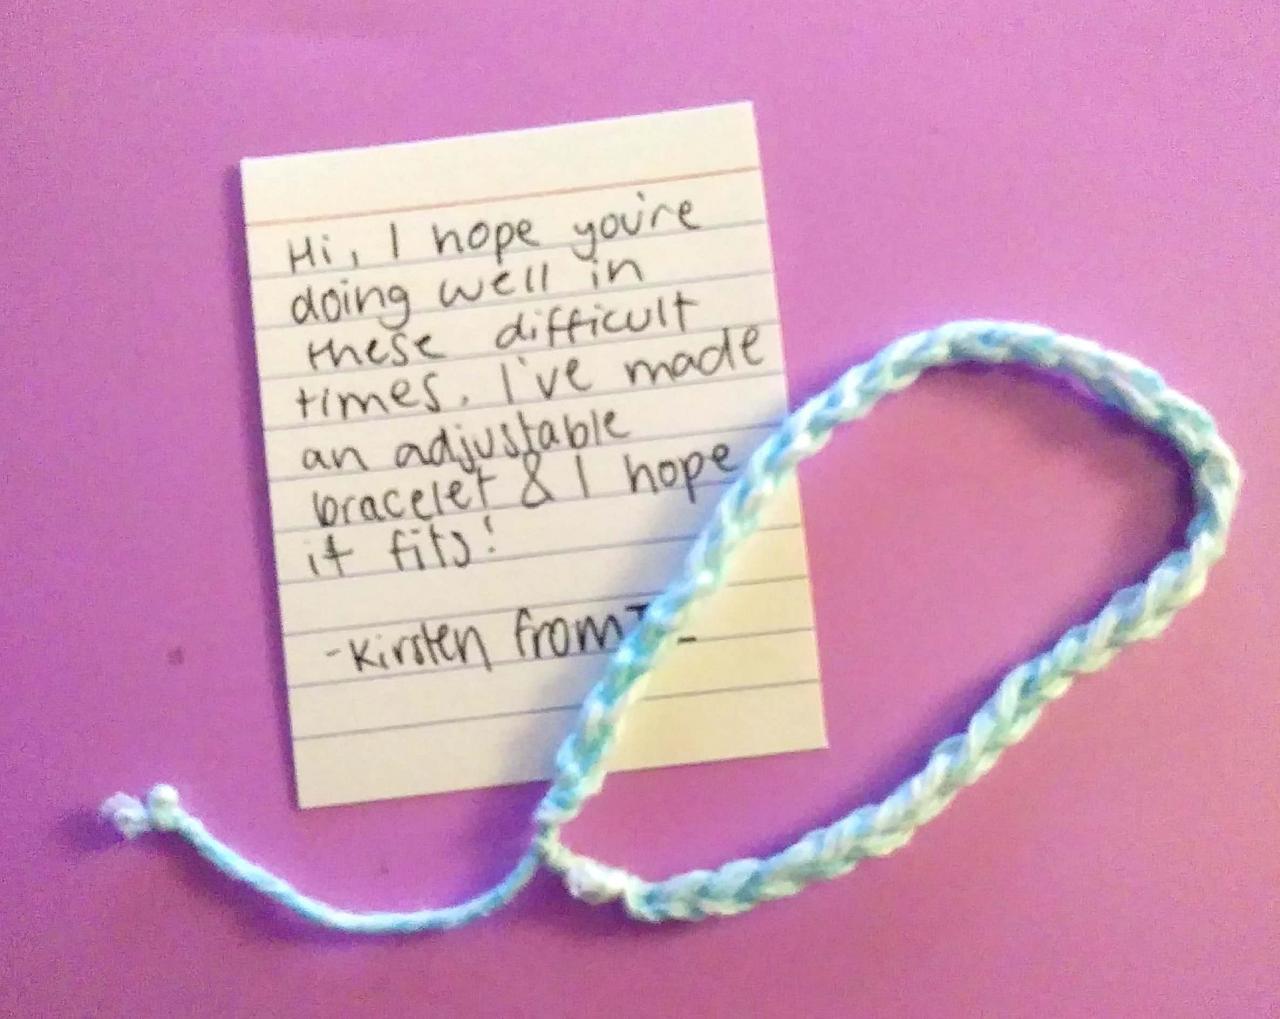 Hi, I hope you're
doing well in
these difficult
times. I've made
an adjustable
bracelet & I hope
it fits!
-Kirsten from